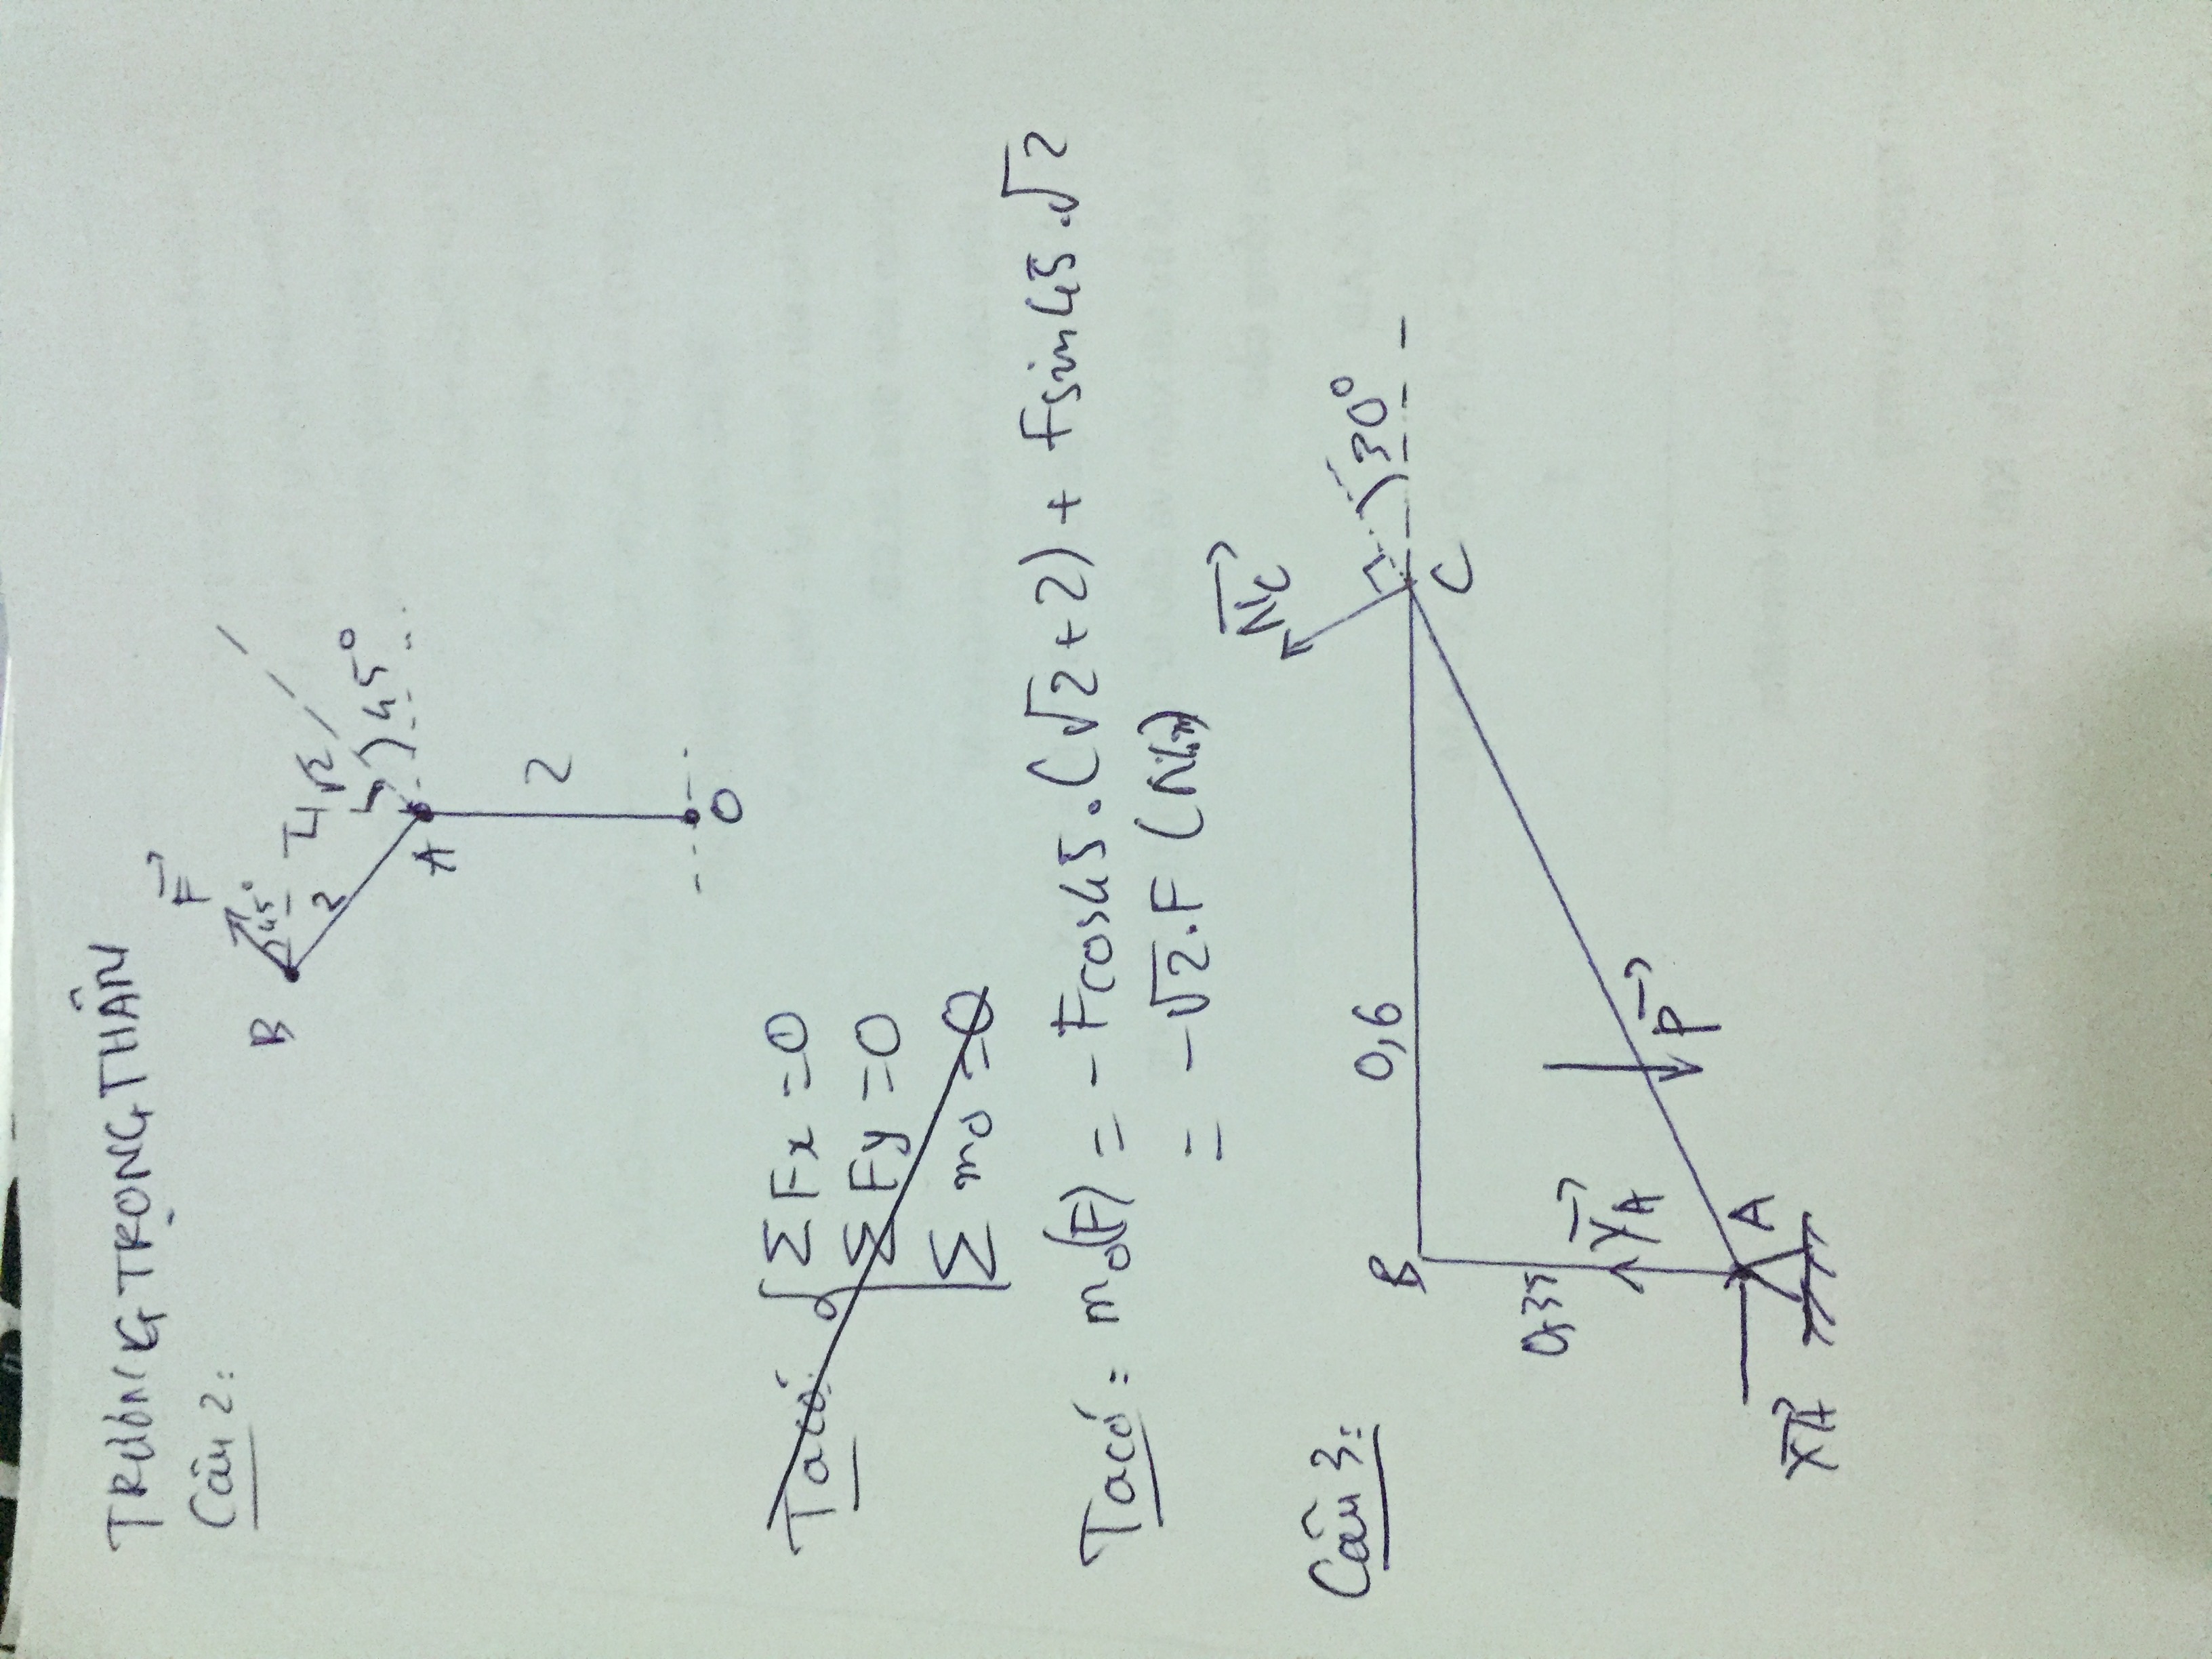 TRƯƠNG TRỌNG THÂN
Câu 2:
F
B 45°
2 √2
45°
A
2
O
Ta có: ΣFx = 0
ΣFy = 0
Σ mo = 0
Ta có: mo(F) = -Fcos45.(√2+2) + Fsin45.√2
= -√2.F (N.m)
Câu 3:
NC
B 0,6 30°
C
0,35
YA
P
A
XA